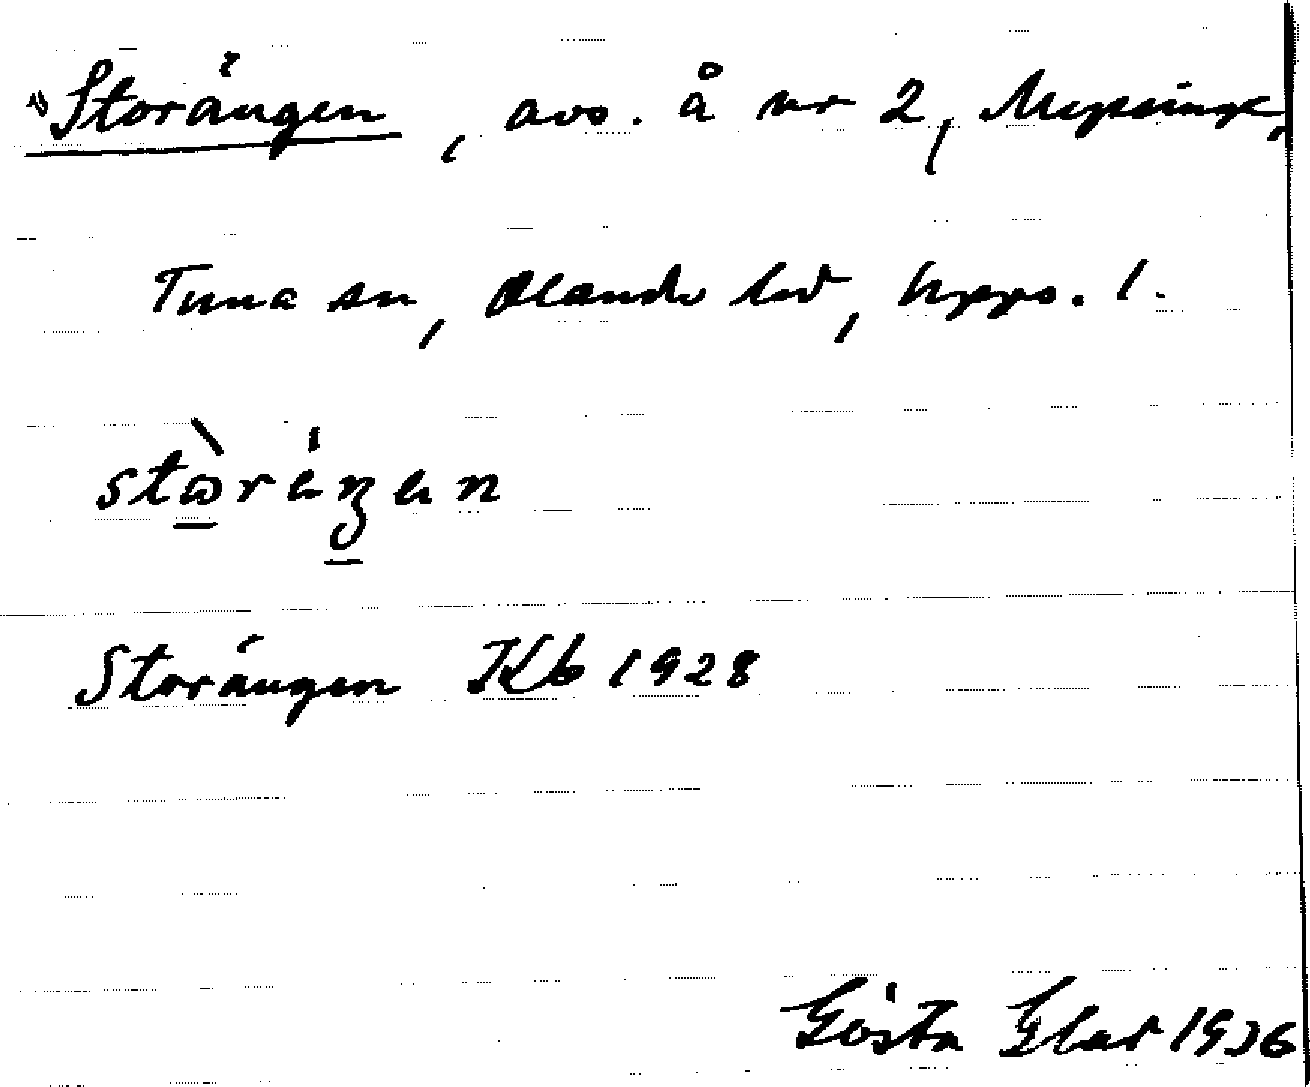 Storängen, avs. å nr 2,
Tuna sn, Olands hd, Upps. l.
Storängen Kb 1928
Gösta 1936